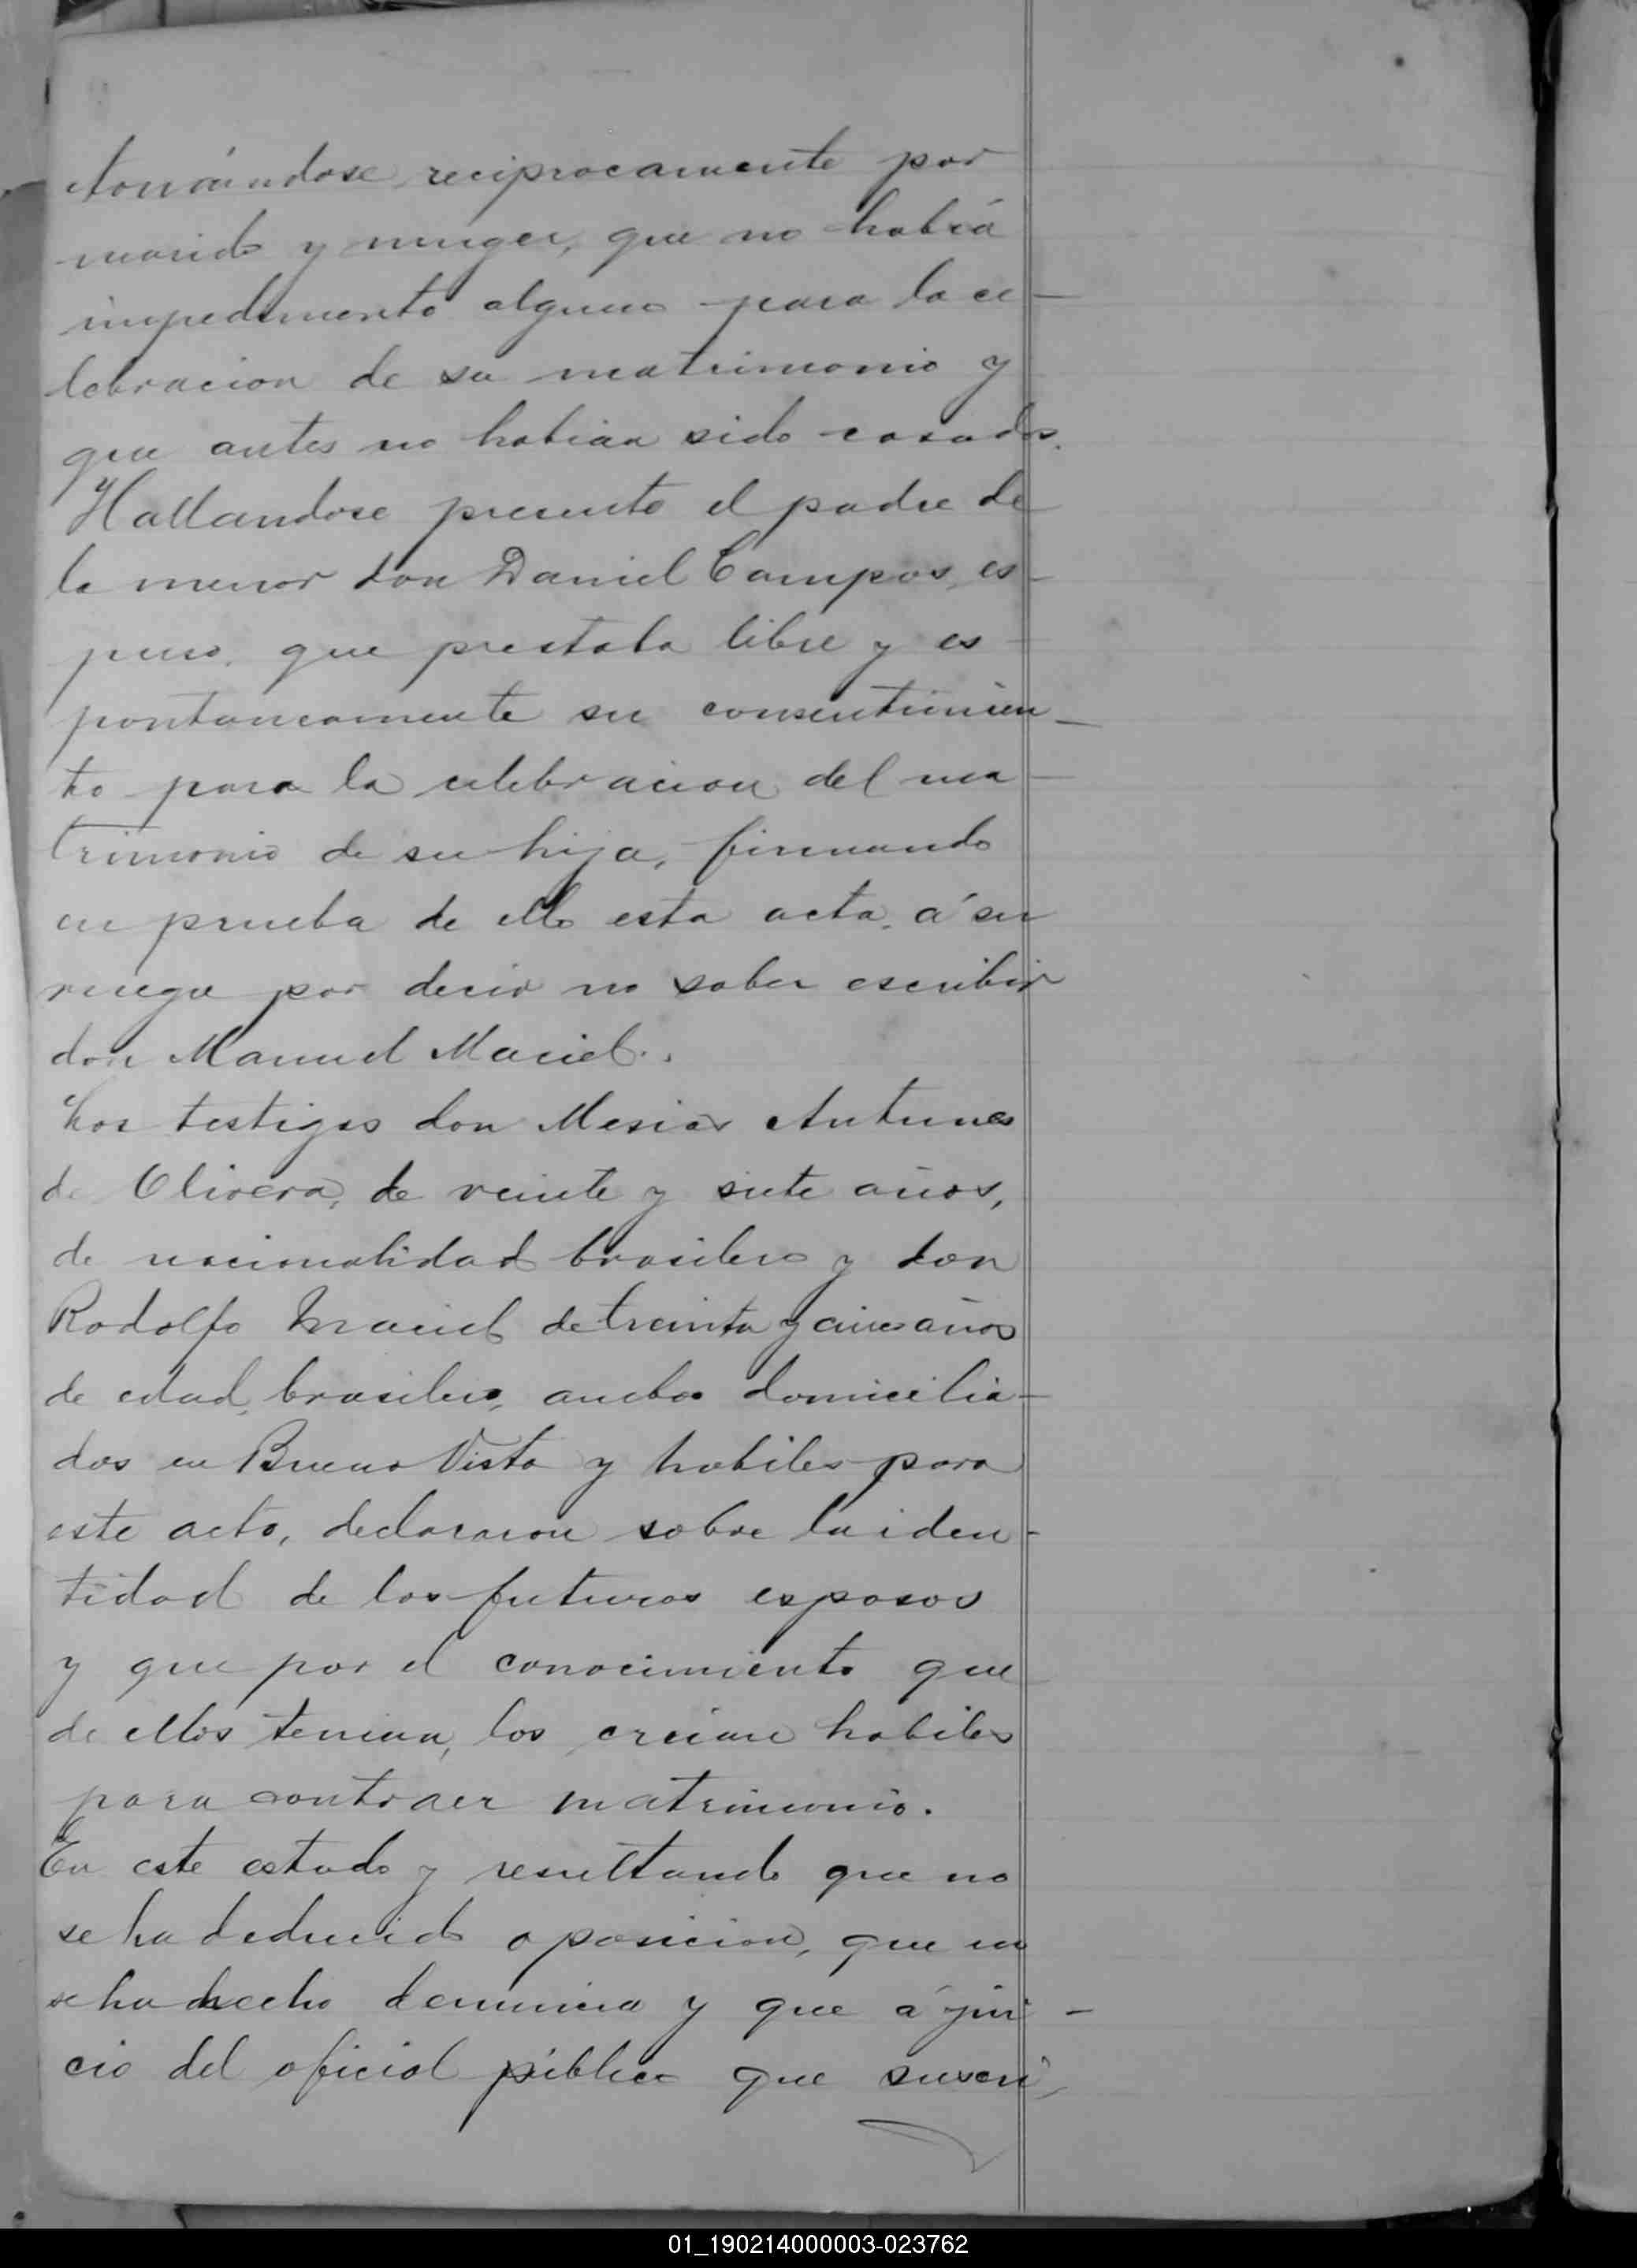 tomándose, reciprocamente por
marido y muger, que no habiá
impedimento alguno para la ce-
lebracion de su matrimonio y
que antes no habian sido casados.
Hallandose presente el padre de
la menor don Daniel Campos, es-
puso, que prestaba libre y es-
pontaneamente su consentimien-
to para la celebracion del ma-
trimonio de su hija, firmando
en prueba de ello esta acta, á su
ruego por decir no saber escribir
don Manuel Maciel.
Los testigos don Mesias Antunes
de Olivera, de veinte y siete años,
de nacionalidad brasilero y don
Rodolfo Maciel de treinta y cinco años
de edad, brasilero, ambos domicilia-
dos en Buena Vista y habiles para
este acto, declararon sobre la iden-
tidad de los futuros esposos
y que por el conocimiento que
de ellos tenian, los creian habiles
para contraer matrimonio.
En este estado y resultando que no
se ha deducido oposicion, que no
se ha hecho denuncia y que á jui-
cio del oficial público que suscri-
01_190214000003-023762